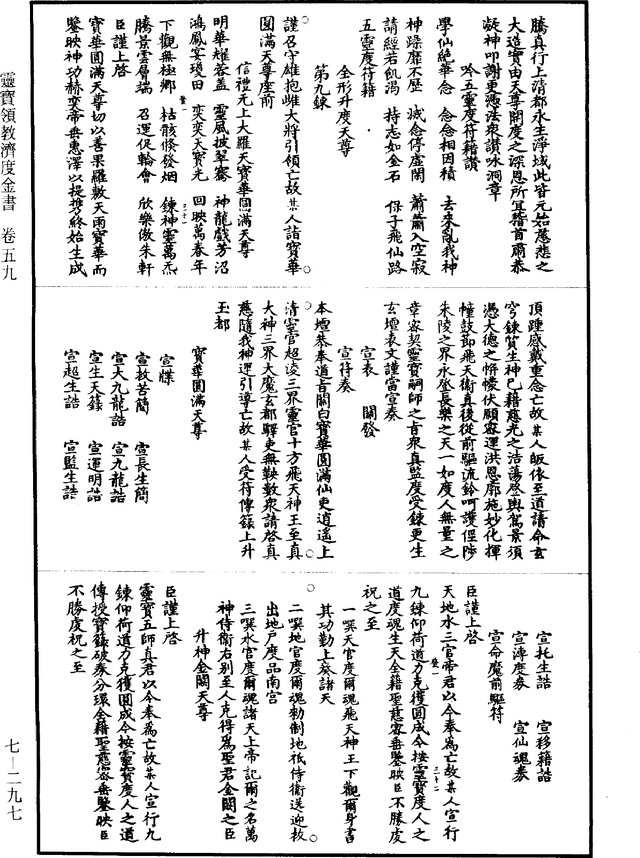 靈寶領教濟度金書 卷五九
七—二九七
騰真行上清都永生淨域此皆元始慈悲之
大造實由天尊開度之深恩所宜稽首爾恭
凝神叩謝更憑法衆讚咏洞章
吟五靈度符籍讚
學仙絕華念 念念相因積 去來亂我神
神躁靡不歷 滅念停虛閑 蕭蕭入空寂
請經若飢渴 持志如金石 保子飛仙路
五靈度符籍
全形升度天尊
第九鍊
謹召守雄抱雌大將引領亡故某人詣寶華
圓滿天尊座前
信禮无上大羅天寶華圓滿天尊
明華耀蓉蓋 靈風披翠騫 神龍戲芳沼
鴻鳳安瓊田 奕奕天寶光 回映萬春年
下觀無極鄉 枯骸倏發烟 鍊神靈萬炁
騰景雲層端 召運促輪會 欣樂儌朱軒
臣謹上啓
寶華圓滿天尊切以善果羅敷天雨寶華而
鑒映神功赫奕帝垂惠澤以提擕終始生成
頂踵感戴重念亡故某人皈依至道請命玄
穹鍊質生神已藉慈光之浩蕩登輿駕景須
憑大德之帡幪伏願睿運洪恩廓施妙化揮
幢鼓節飛天衛真後從前驅流鈴呵護俓陟
朱陵之界永登長樂之天一如度人無量之
章密契靈寶嗣師之旨衆真監度受鍊更生
玄壇表文謹當宣奏
宣表 關發
宣符奏
本壇恭奉道旨關白寶華圓滿仙更逍遙上
清靈官超淩三界靈官十方飛天神王至真
大神三界大魔玄都驛吏無鞅數衆請啓真
慈隨我神運引導亡故某人受符傳籙上升
玉都
寶華圓滿天尊
宣牒
宣救苦簡 宣長生簡
宣大九龍誥 宣九龍誥
宣生天籙 宣運明誥
宣超生誥 宣監生誥
宣托生誥 宣移籍誥
宣溥度券 宣仙魂券
宣命魔前驅符
臣謹上啓
天地水三官帝君以今奉爲亡故某人宣行
九鍊仰荷道力克獲圓成今按靈寶度人之
道度魂生天全藉聖慈密垂鑒映臣不勝虔
祝之至
一噀天官度爾魂飛天神王下觀爾身書
其功勤上奏諸天
二噀地官度爾魂勑制地祇侍衛送迎拔
出地戸度品南宮
三噀水官度爾魂諸天上帝記爾之名萬
神侍衛右别至人克得爲聖君金闕之臣
升神金闕天尊
臣謹上啓
靈寶五師真君以今奉爲亡故某人宣行九
鍊仰荷道力克獲圓成今按靈寶度人之道
傳授寶籙破券分環全藉聖慈密垂鑒映臣
不勝虔祝之至